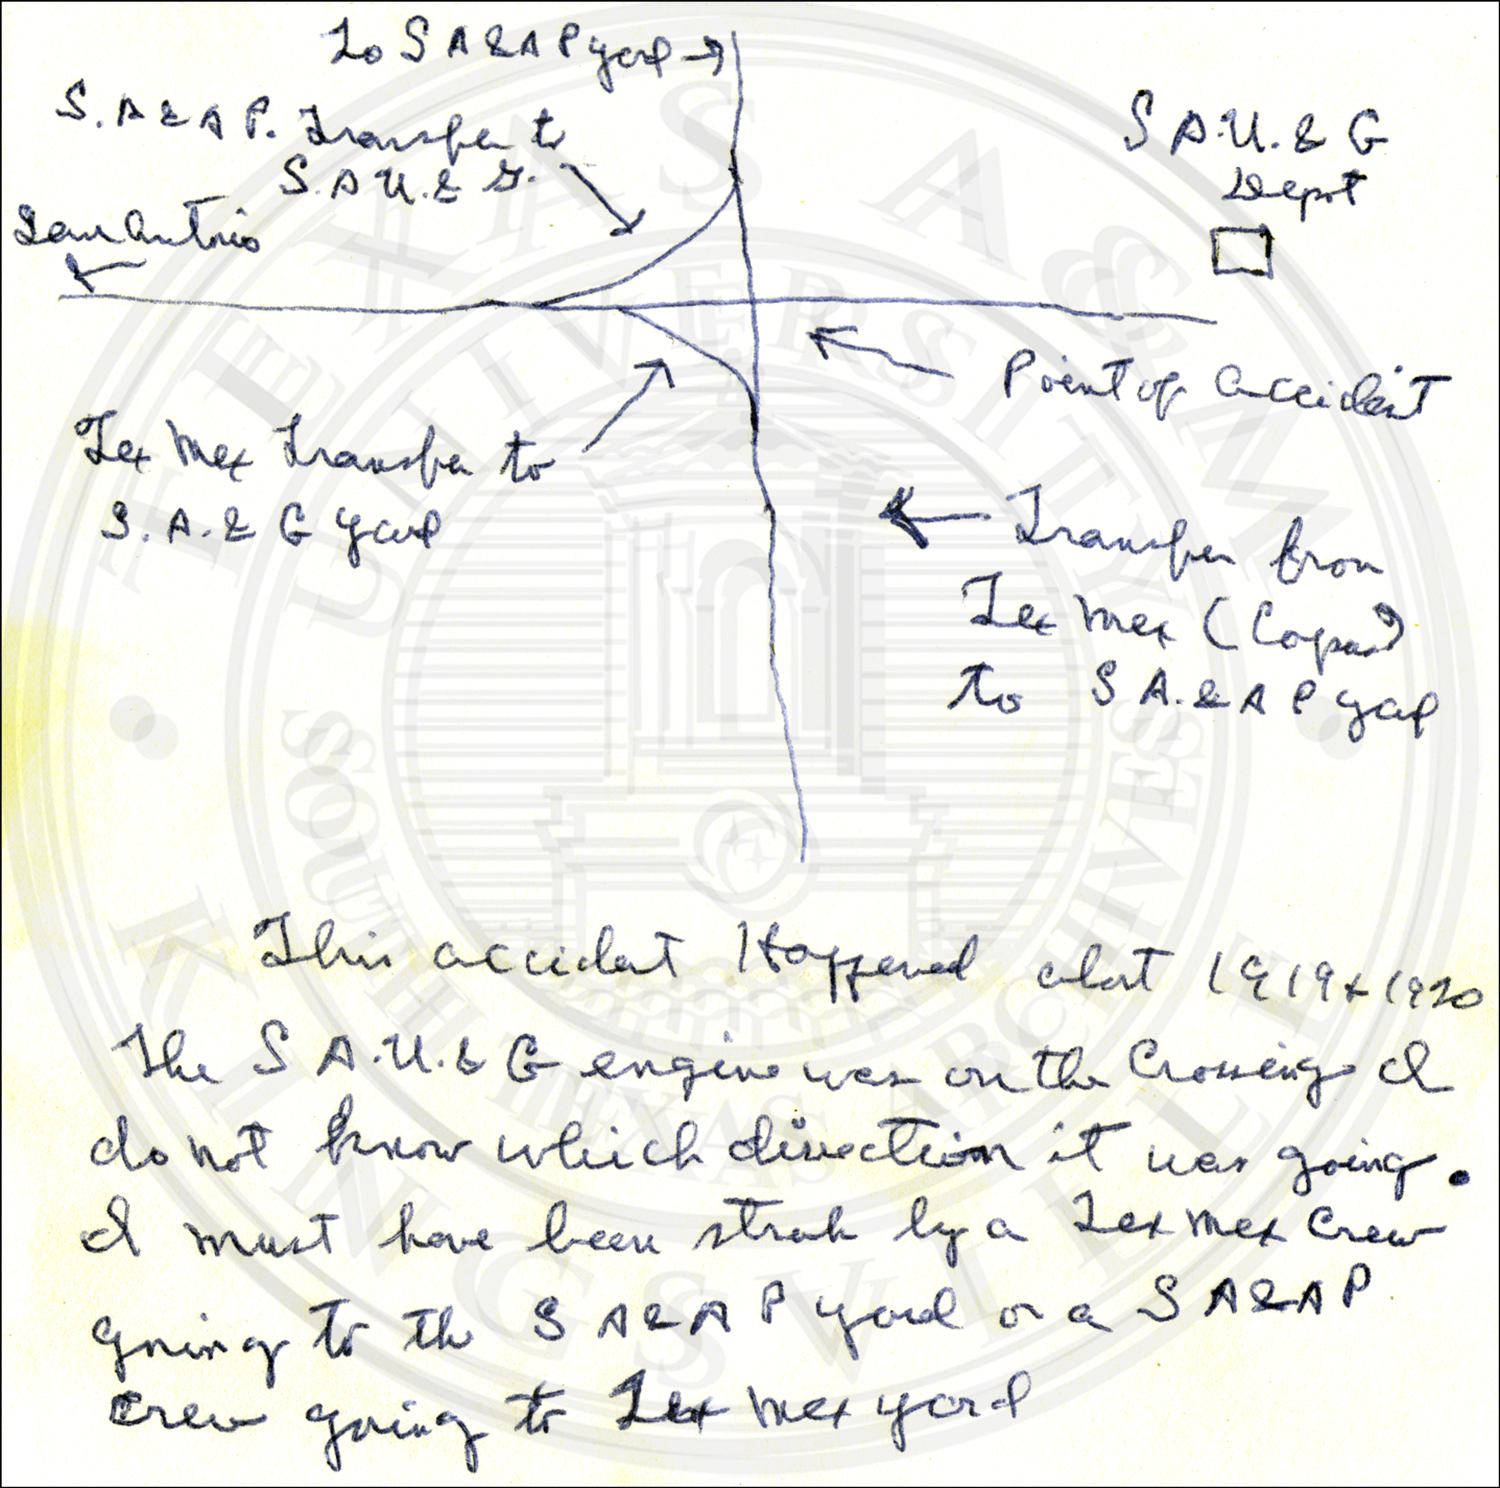 To S A & A P yard
S. A & A P. Transfer to
S. A U. & G.
San Antonio
S A. U. & G
Depot
Point of accident
Tex Mex Transfer to
S. A. & G yard
Transfer from
Tex Mex (Corpus)
to S A. & A P yard
This accident Happened abot 1919 & 1920
The S A. U. & G engine was on the Crossing I
do not know which direction it was going.
I must have been struk by a Tex Mex Crew
going to the S A & A P yard or a S A & A P
crew going to Tex Mex yard
TEXAS A&M
UNIVERSITY
KINGSVILLE
SOUTH TEXAS ARCHIVES